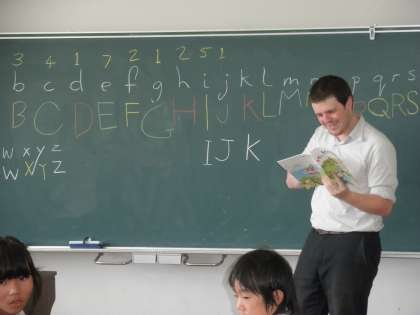 3 4 1 7 2 1 2 5 1
b c d e f g h i j k l m n p q r s
B C D E F G H I J K L M P Q R S
I J K
w x y z
W X Y Z